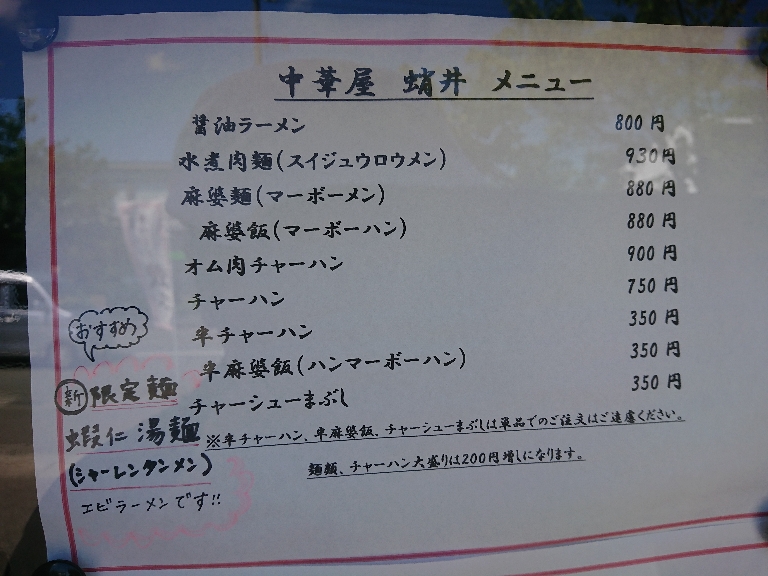 中華屋 蛸井 メニュー
醤油ラーメン 800円
水煮肉麺(スイジュウロウメン) 930円
麻婆麺(マーボーメン) 880円
麻婆飯(マーボーハン) 880円
オム肉チャーハン 900円
チャーハン 750円
半チャーハン 350円
半麻婆飯(ハンマーボーハン) 350円
チャーシューまぶし 350円
※半チャーハン、半麻婆飯、チャーシューまぶしは単品でのご注文はご遠慮ください。
麺類、チャーハン大盛りは200円増しになります。
おすすめ
新 限定麺
蝦仁湯麺
(シャーレンタンメン)
エビラーメンです!!